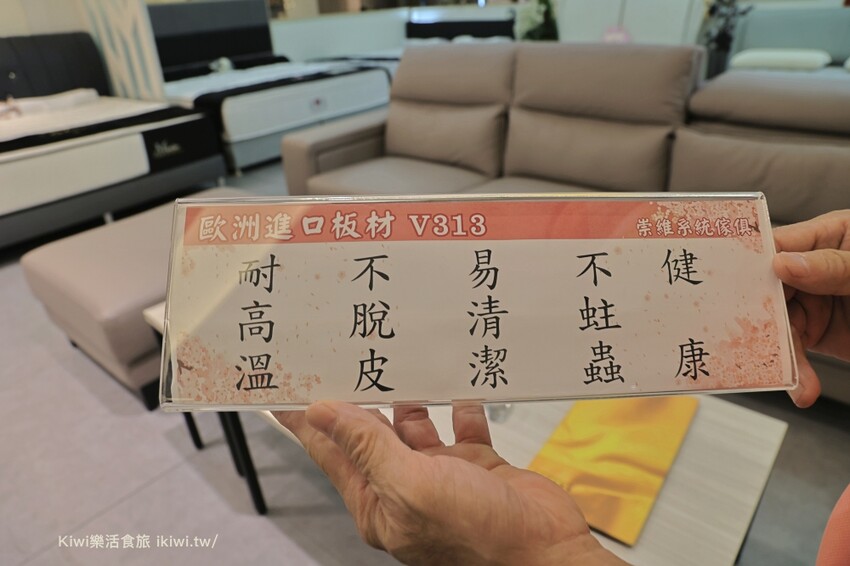 歐洲進口板材 V313
崇維系統傢俱
耐高溫
不脫皮
易清潔
不蛀蟲
健康
Kiwi樂活食旅 ikiwi.tw/